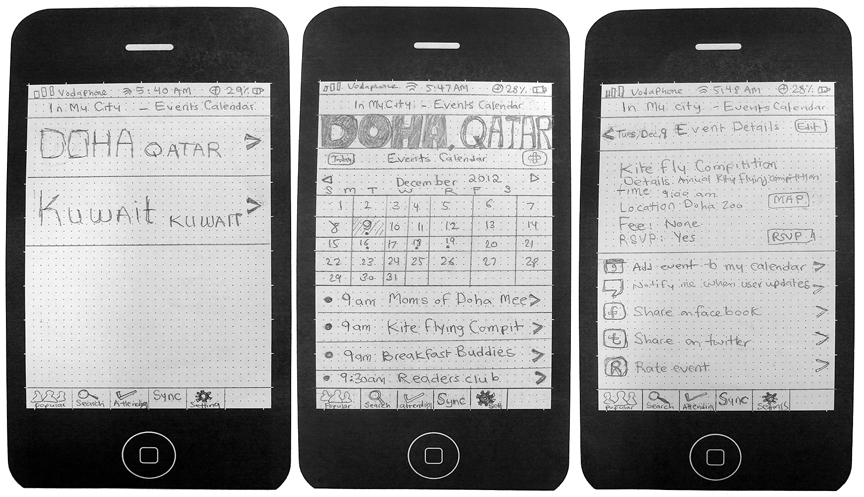 Vodaphone 5:40 AM 29%
In My City - Events Calendar
DOHA QATAR >
Kuwait KUWAIT >
Popular Search Attending Sync Setting
Vodaphone 5:47AM 28%
In My City - Events Calendar
DOHA, QATAR
Today Events Calendar +
December 2012
S M T W R F S
1 2 3 4 5 6 7
8 9 10 11 12 13 14
15 16 17 18 19 20 21
22 23 24 25 26 27 28
29 30 31
9am Moms of Doha Mee >
9am Kite flying Compit >
9am Breakfast Buddies >
9:30am Readers club >
Popular Search attending Sync Sett
Vodaphone 5:48 AM 28%
In My City - Events Calendar
<Tues, Dec, 9 Event Details Edit
Kite Fly Compitition
Details: Annual Kity flying compitition
Time 9:00 am
Location Doha Zoo MAP
Fee: None
RSVP: Yes RSVP
9 Add event to my calendar >
Notify me when user updates >
f Share on facebook >
t Share on twitter >
R Rate event >
Popular Search Attending Sync